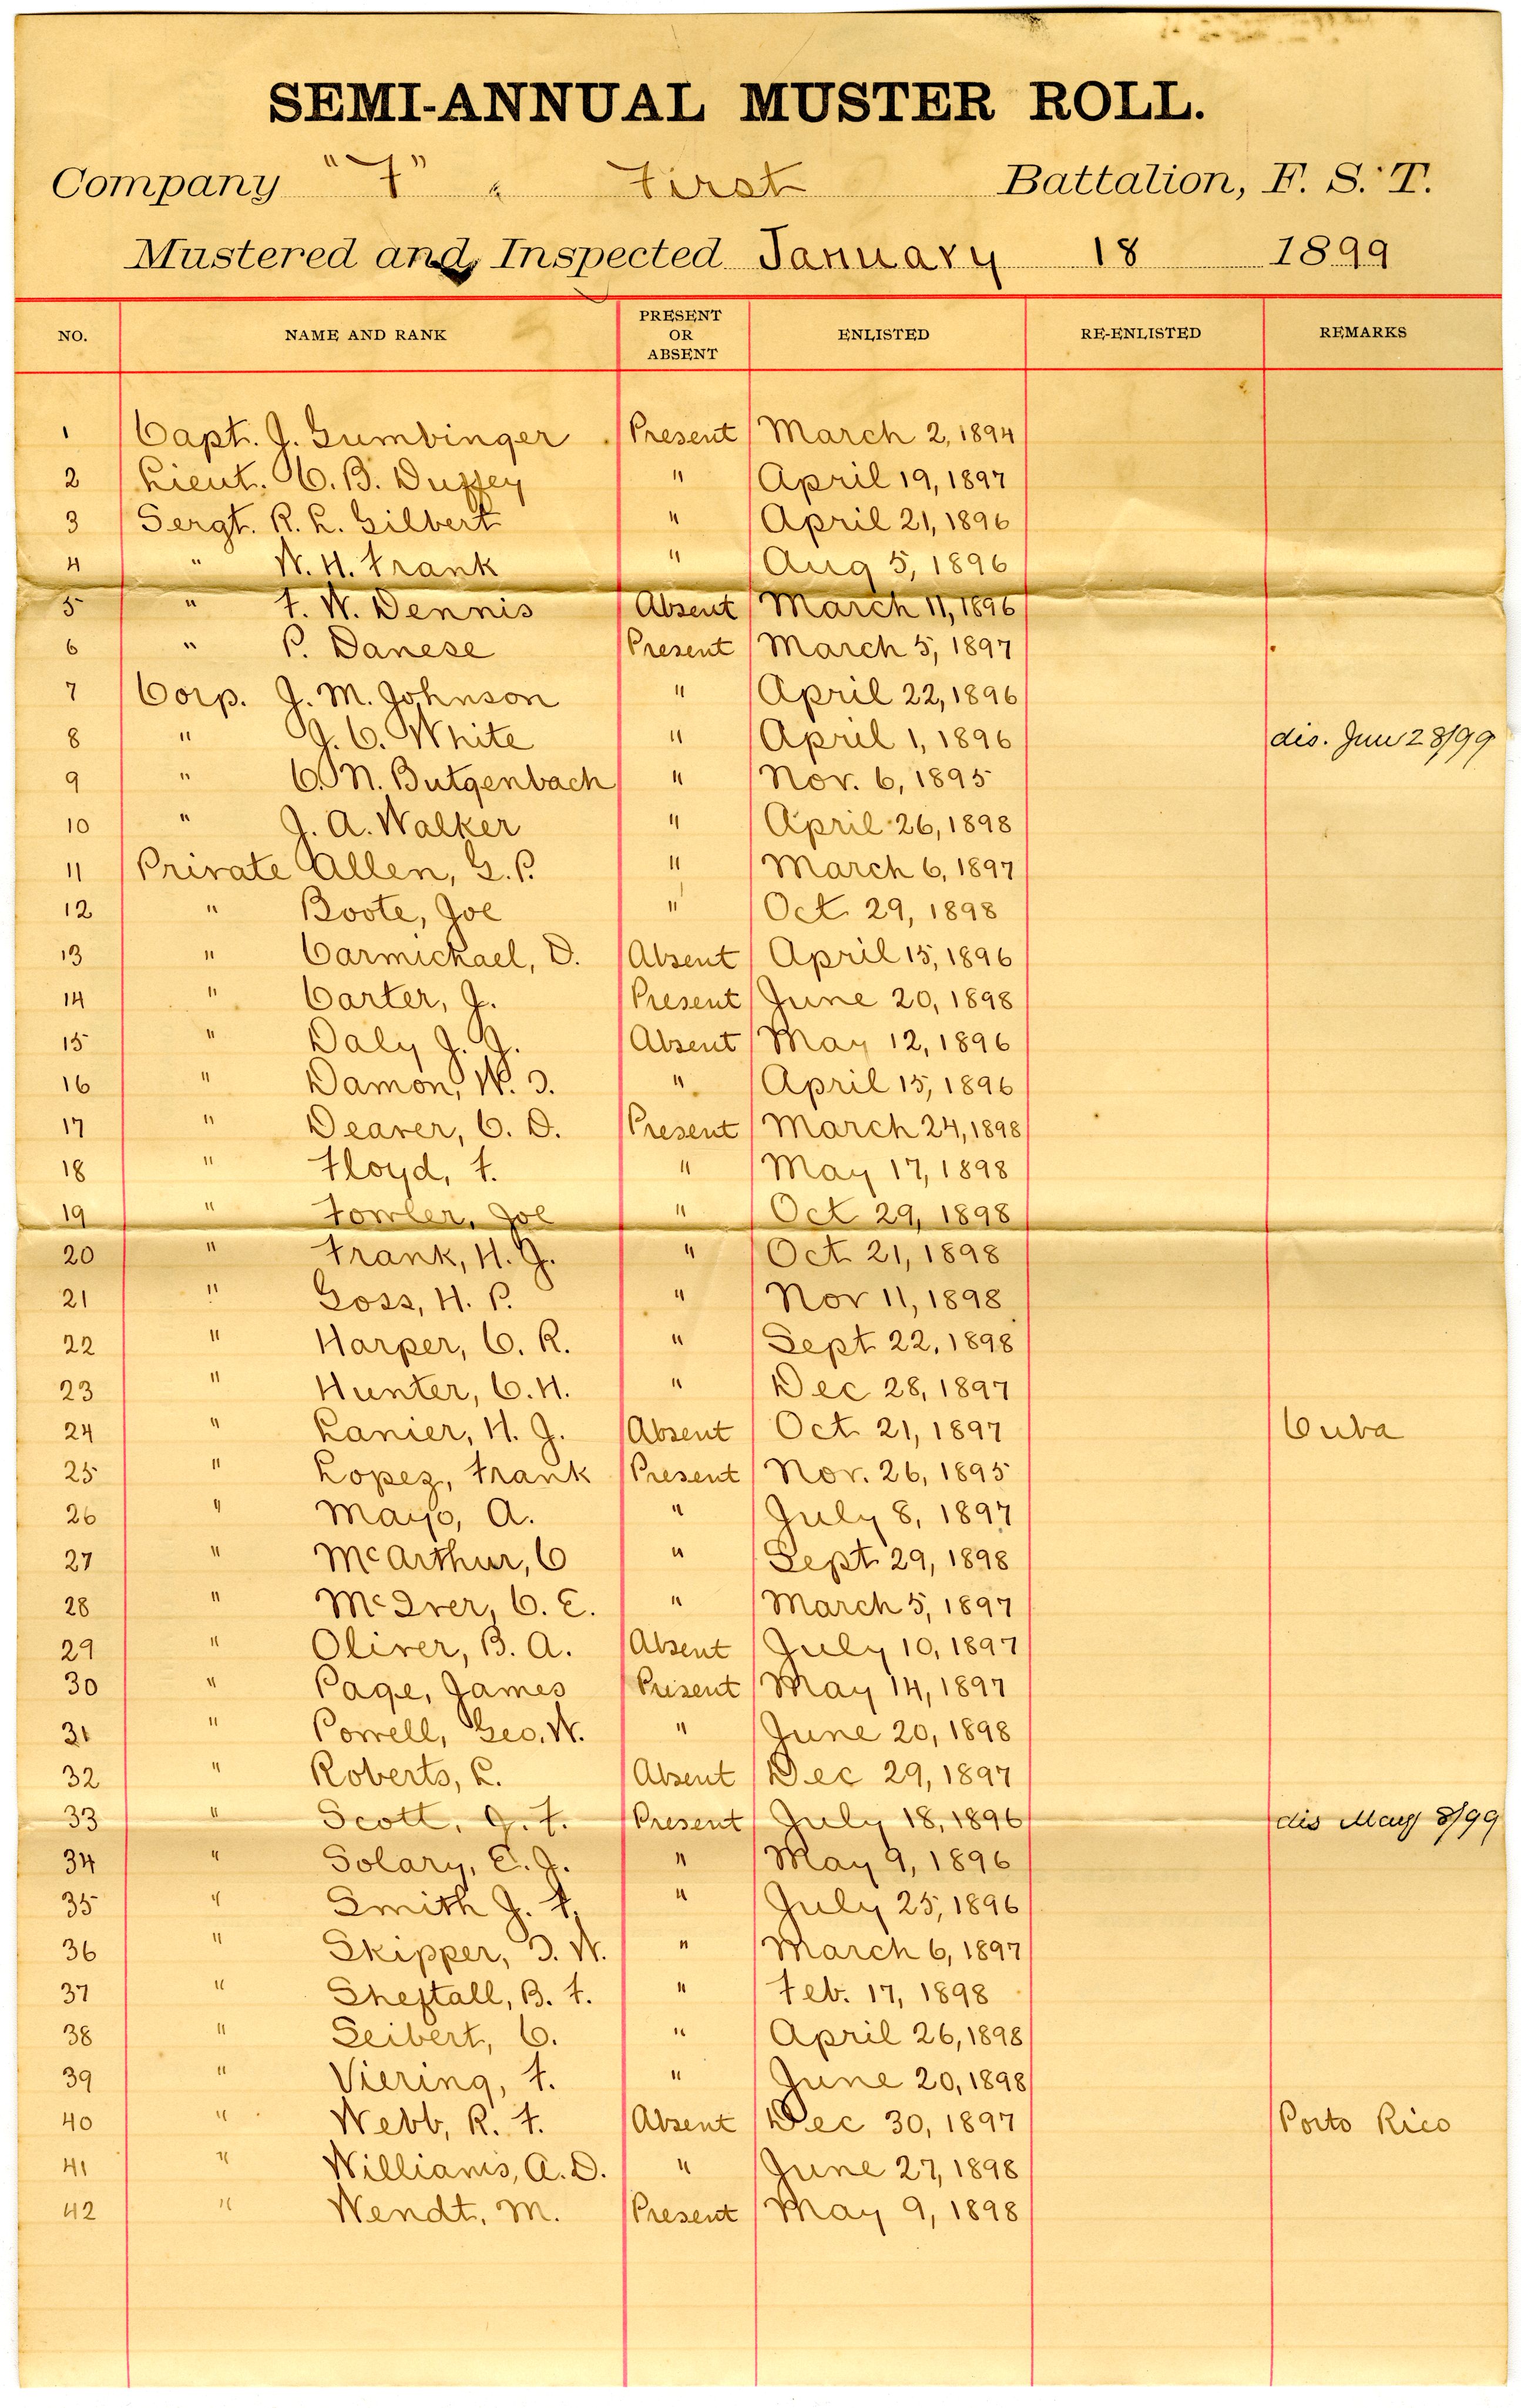 SEMI-ANNUAL MUSTER ROLL.
Company "F" First Battalion, F. S. T.
Mustered and Inspected January 18 1899
NO. NAME AND RANK PRESENT OR ABSENT ENLISTED RE-ENLISTED REMARKS
1 Capt. J. Gumbinger Present March 2, 1894
2 Lieut. C. B. Duffey " April 19, 1897
3 Sergt. R. L. Gilbert " April 21, 1896
4 " W. H. Frank " Aug 5, 1896
5 " F. W. Dennis Absent March 11, 1896
6 " P. Danese Present March 5, 1897
7 Corp. J. M. Johnson " April 22, 1896
8 " J. C. White " April 1, 1896 dis. 28/99
9 " C. N. Butgenbach " Nov. 6, 1895
10 " J. A. Walker " April 26, 1898
11 Private Allen, G. P. " March 6, 1897
12 " Boote, Joe " Oct. 29, 1898
13 " Carmichael, D. Absent April 15, 1896
14 " Carter, J. Present June 20, 1898
15 " Daly J. J. Absent May 12, 1896
16 " Damon, W. I. " April 15, 1896
17 " Deaver, C. D. Present March 24, 1898
18 " Floyd, F. " May 17, 1898
19 " Fowler, Joe " Oct 29, 1898
20 " Frank, H. J. " Oct. 21, 1898
21 " Goss, H. P. " Nov 11, 1898
22 " Harper, C. R. " Sept. 22, 1898
23 " Hunter, C. H. " Dec 28, 1897
24 " Lanier, H. J. Absent Oct. 21, 1897 Cuba
25 " Lopez, Frank Present Nov. 26, 1895
26 " Mayo, A. " July 8, 1897
27 " McArthur, C " Sept. 29, 1898
28 " McIver, C. E. " March 5, 1897
29 " Oliver, B. A. Absent July 10, 1897
30 " Page, James Present May 14, 1897
31 " Powell, Geo. W. " June 20, 1898
32 " Roberts, L. Absent Dec 29, 1897
33 " Scott, J. F. Present July 18, 1896 dis May 8/99
34 " Solary, E. J. " May 9, 1896
35 " Smith J. F. " July 25, 1896
36 " Skipper, I. W. " March 6, 1897
37 " Sheftall, B. F. " Feb. 17, 1898
38 " Seibert, C. " April 26, 1898
39 " Viering, F. " June 20, 1898
40 " Webb, R. F. Absent Dec 30, 1897 Porto Rico
41 " Williams, A. D. " June 27, 1898
42 " Wendt, M. Present May 9, 1898